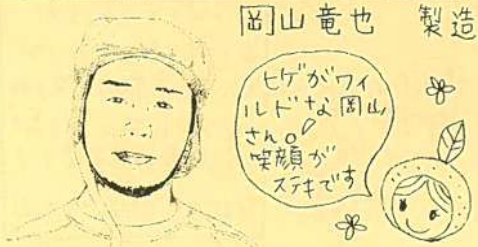 岡山竜也 製造
ヒゲがワイ
ルドな岡山
さん。
笑顔が
ステキです